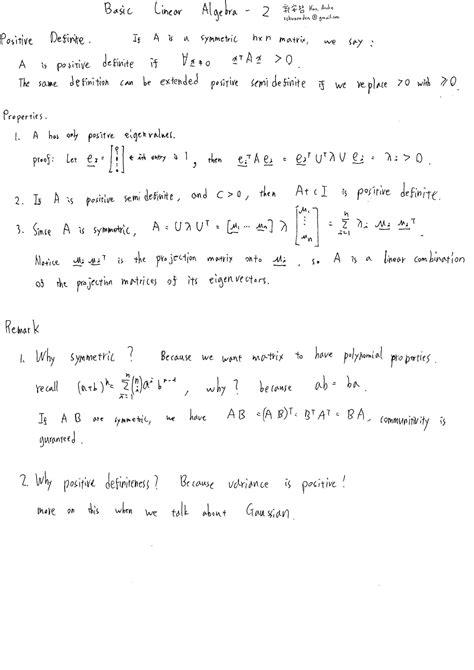 Basic Linear Algebra - 2
Positive Definite. If A is a symmetric n×n matrix, we say:
A is positive definite if ∀x≠0 xᵀAx > 0.
The same definition can be extended positive semidefinite if we replace >0 with ≥0.
Properties.
1. A has only positive eigenvalues.
proof: Let eᵢ = [0 ⋮ 1 ⋮ 0] ← ith entry is 1, then eᵢᵀAeᵢ = eᵢᵀUᵀλUeᵢ = λᵢ > 0.
2. If A is positive semidefinite, and C > 0, then A + cI is positive definite.
3. Sinse A is symmetric, A = UλUᵀ = [u₁ ⋯ uₙ] λ [u₁ ⋮ uₙ] = Σᵢ₌₁ⁿ λᵢ uᵢ uᵢᵀ.
Notice uᵢuᵢᵀ is the projection matrix onto uᵢ, so A is a linear combination
of the projection matrices of its eigenvectors.
Remark
1. Why symmetric? Because we want matrix to have polynomial properties.
recall (a+b)ⁿ = Σᵢ₌₁ⁿ (n i) aⁱ bⁿ⁻ⁱ, why? because ab = ba.
If A B are symmetric, we have AB = (AB)ᵀ = BᵀAᵀ = BA, communitivity is
guranteed.
2. Why positive definiteness? Because variance is positive!
more on this when we talk about Gaussian.